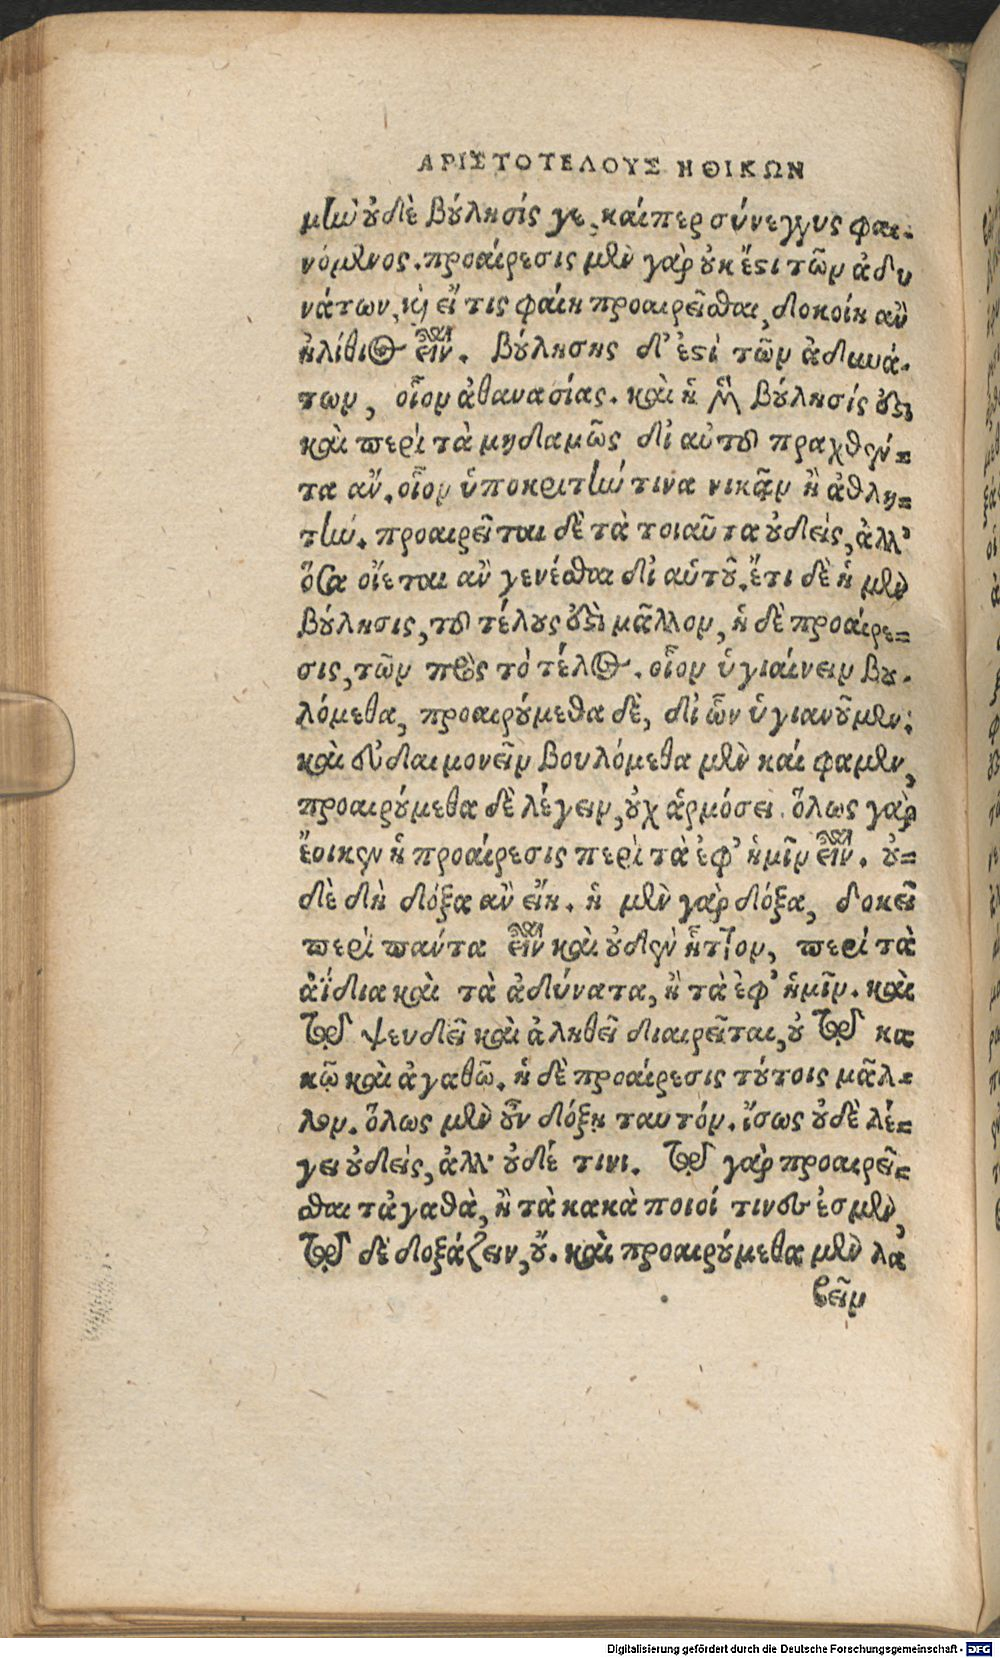 ΑΡΙΣΤΟΤΕΛΟΥΣ ΗΘΙΚΩΝ
μὴν οὐδὲ βούλησίς γε, καίπερ σύνεγγυς φαι-
νόμενος. προαίρεσις μὲν γὰρ οὐκ ἔστι τῶν ἀδυ
νάτων, καὶ εἴ τις φαίη προαιρεῖσθαι, δοκοίη ἂν
ἠλίθιος εἶναι. βούλησης δ' ἐστὶ τῶν ἀδυνά-
των, οἷον ἀθανασίας. καὶ ἡ μὲν βούλησίς ἐστι
καὶ περὶ τὰ μηδαμῶς δι' αὐτοῦ πραχθέν-
τα ἄν. οἷον ὑποκριτήν τινα νικᾶν ἢ ἀθλη-
τήν. προαιρεῖται δὲ τὰ τοιαῦτα οὐδείς, ἀλλ'
ὅσα οἴεται ἂν γενέσθαι δι' αὑτοῦ. ἔτι δὲ ἡ μὲν
βούλησις, τοῦ τέλους ἐστὶ μᾶλλον, ἡ δὲ προαίρε-
σις, τῶν πρὸς τὸ τέλος. οἷον ὑγιαίνειν βου-
λόμεθα, προαιρούμεθα δὲ, δι' ὧν ὑγιανοῦμεν:
καὶ εὐδαιμονεῖν βουλόμεθα μὲν καί φαμεν,
προαιρούμεθα δὲ λέγειν, οὐχ ἁρμόσει. ὅλως γὰρ
ἔοικεν ἡ προαίρεσις περὶ τὰ ἐφ' ἡμῖν εἶναι. οὐ-
δὲ δὴ δόξα ἂν εἴη. ἡ μὲν γὰρ δόξα, δοκεῖ
περὶ πάντα εἶναι καὶ οὐδὲν ἧττον, περὶ τὰ
ἀΐδια καὶ τὰ ἀδύνατα, ἢ τὰ ἐφ' ἡμῖν. καὶ
τῷ ψευδεῖ καὶ ἀληθεῖ διαιρεῖται, οὐ τῷ κα
κῷ καὶ ἀγαθῷ. ἡ δὲ προαίρεσις τούτοις μᾶλ-
λον. ὅλως μὲν οὖν δόξῃ ταυτόν. ἴσως οὐδὲ λέ-
γει οὐδείς, ἀλλ' οὐδέ τινι. τῷ γὰρ προαιρεῖ-
σθαι τἀγαθὰ, ἢ τὰ κακὰ ποιοί τινές ἐσμεν,
τῷ δὲ δοξάζειν, οὔ. καὶ προαιρούμεθα μὲν λα
βεῖν
Digitalisierung gefördert durch die Deutsche Forschungsgemeinschaft - DFG